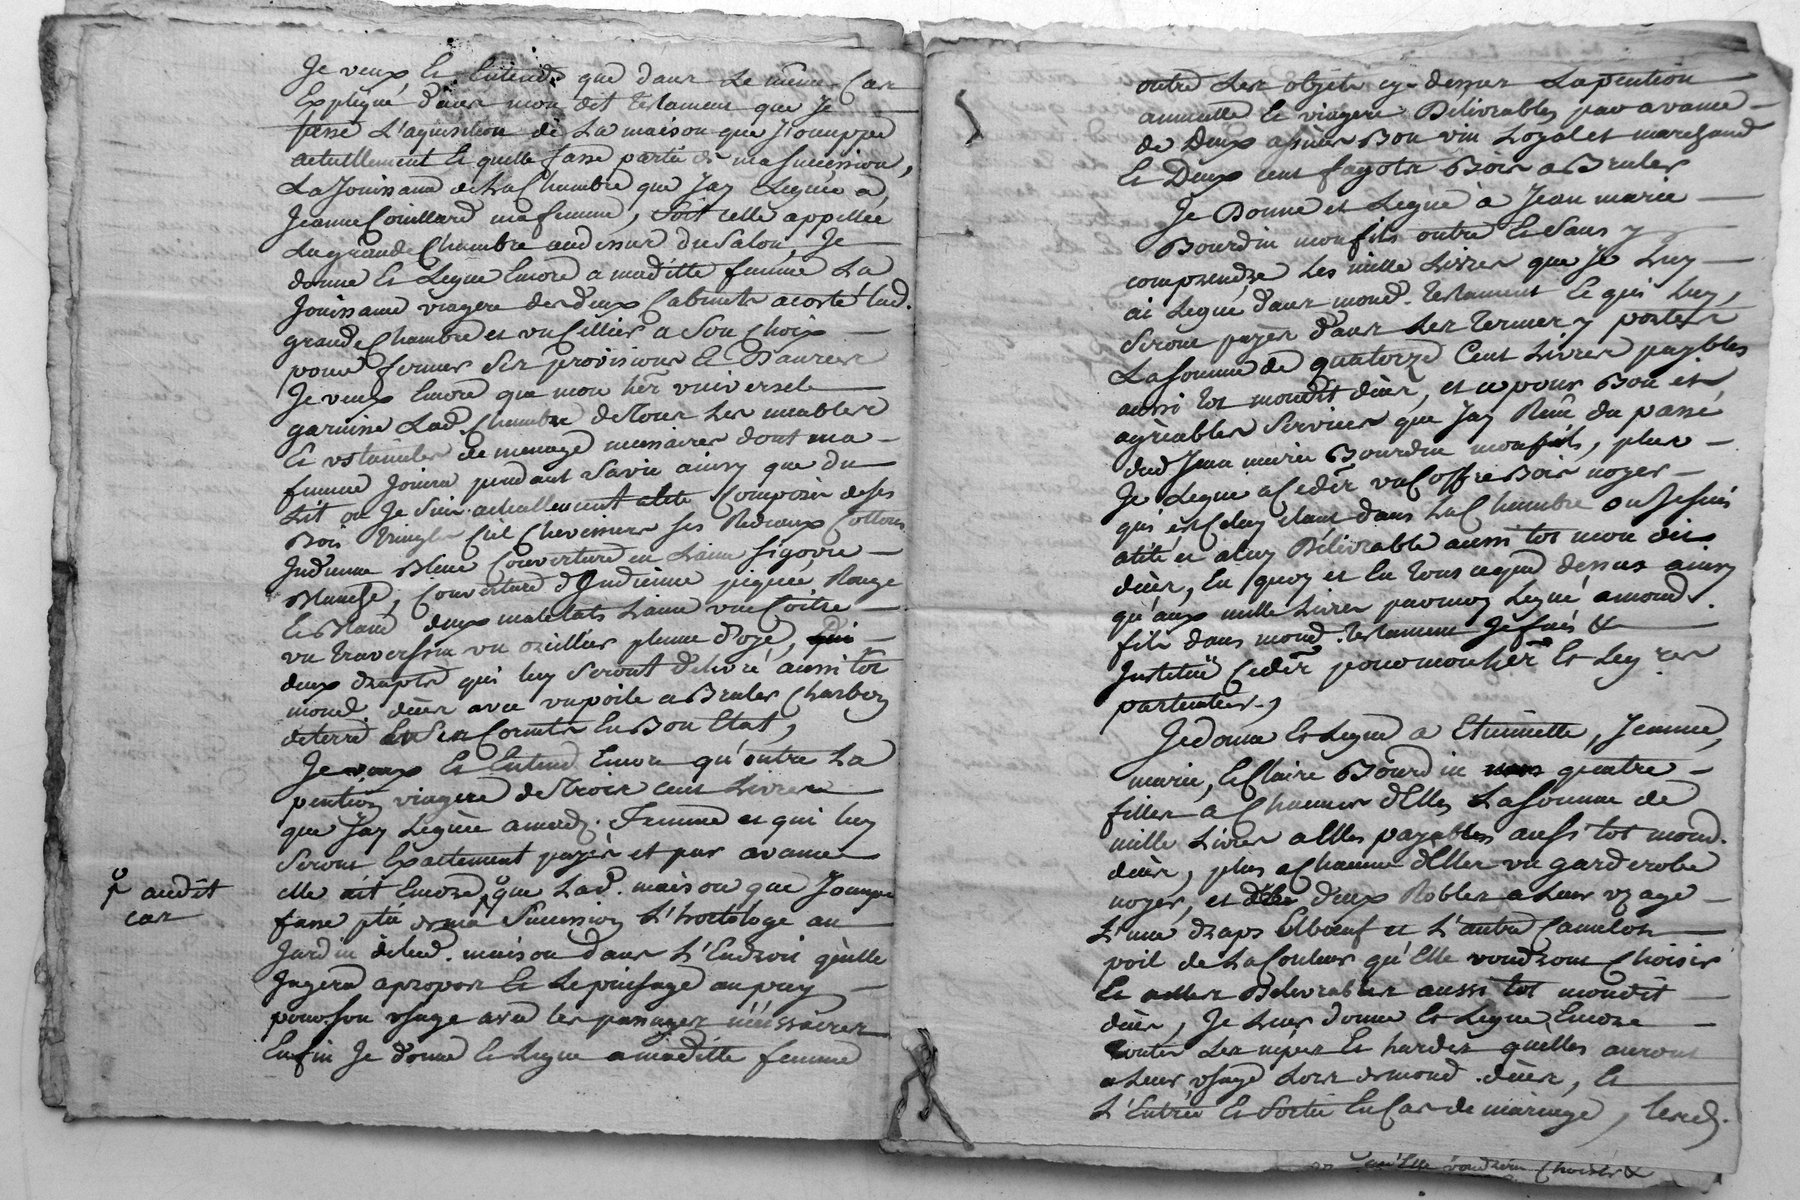 Je veux et Entends que dans Le même Cas
Expliqué dans mon dit testament que Je
fasse L'aquisition de La maison que J'ouccupe
actuellement Et quelle fasse partie de ma succession,
La Jouissance de La Chambre que J'ay Leguée a
Jeanne Couillard ma femme, soit celle appellée
La grande Chambre au dessus du Salon, Je
donne Et Legue Encore a maditte femme La
Jouissance viagere des deux Cabinets acosté lad.
grande Chambre et un Cellier a Son Choix
pour fermer Ses provisions Et Danrées
Je veux Encore que mon her. universel
garnisse Lad. Chambre de Tous Les meubles
Et ustanciles de menage necessaires dont ma
femme Jouira pendant Sa vie ainsy que du
Lit ou Je Suis actuellement alité Composé de Ses
Bois Tringles Ciel Chevessiers Ses Rideaux Cottons
Indienne Bleue Couverture en Laine
Blanche, Couverture d'Indienne piquée Rouge
Et Blanc deux matelats Laine une Coitre
un traversin un oreillier plume d'oye,
deux drapts qui luy Seront délivré aussi tot
mond. dèces avec un poile a Bruler Charbon
de terre Et Ses Cornets En Bon Etat,
Je veux Et Entend Encore qu'outre La
pention viagere de Trois cent Livres
que J'ay Leguée a mad. Femme et qui luy
Seront Exactement payés et par avance
elle ait Encore, que Lad. maison que J'occupe
fasse ptie de ma Succession L'hortolage au
Jardin de lad. maison dans L'Endroit qu'elle
Jugera apropos Et Le puisage au puy
pour Son usage avec les passages nécessaires
Enfin Je donne Et Legue a maditte femme
audit
cas
outre Les objets cy-dessus La pention
annuelle Et viagere Délivrables par avance
de Deux asnées Bon vin Loyal et marchand
Et Deux cent fagots Bois a Bruler
Je Donne et Legue à Jean marie
Bourdin mon fils outre Et Sans y
comprendre Les mille Livres que Je Luy
ai Legué dans mond. testament Et qui Luy
Seront payés dans Les termes y portés
La Somme de quatorze Cent Livres payables
aussi tot mondit dèces, et ce pour Bon et
agréables Services que J'ay Recu du passé
dud Jean marie Bourdin mon fils, plus
Je Legue a Cedit un Coffre Bois noyer
qui est Celuy étant dans La Chambre ou Je Suis
alité et a luy Délivrable aussi tot mon dit
dèces, En quoy et En tous ce que dessus ainsy
qu'aux mille Livres par moy Legué a mond.
fils dans mond. testament Je fais &
Institue Cedit pour mon her. Et Leg.res
particuliers,
Je donne Et Legue a Etiennette, Jeanne,
marie, Et Claire Bourdin mes quatre
filles a Chacune d'Elles La Somme de
mille Livres a Elles payables aussi tot mond.
dèces, plus a Chacune d'Elles un garderobe
noyer, et deux Robbes a Leur uzage
L'une draps Elbœuf et L'autre Camelot
poil de La Couleur qu'Elle voudront Choisir
Et a elles Délivrables aussi tot mondit
dèces, Je Leur donne Et Legue Encore
toutes Les nipes Et hardes quelles auront
a Leur usage Lors de mond. dèces, Et
L'Entrée Et Sortie En Cas de mariage, lesd.
qu'Elle voudront Choisir &